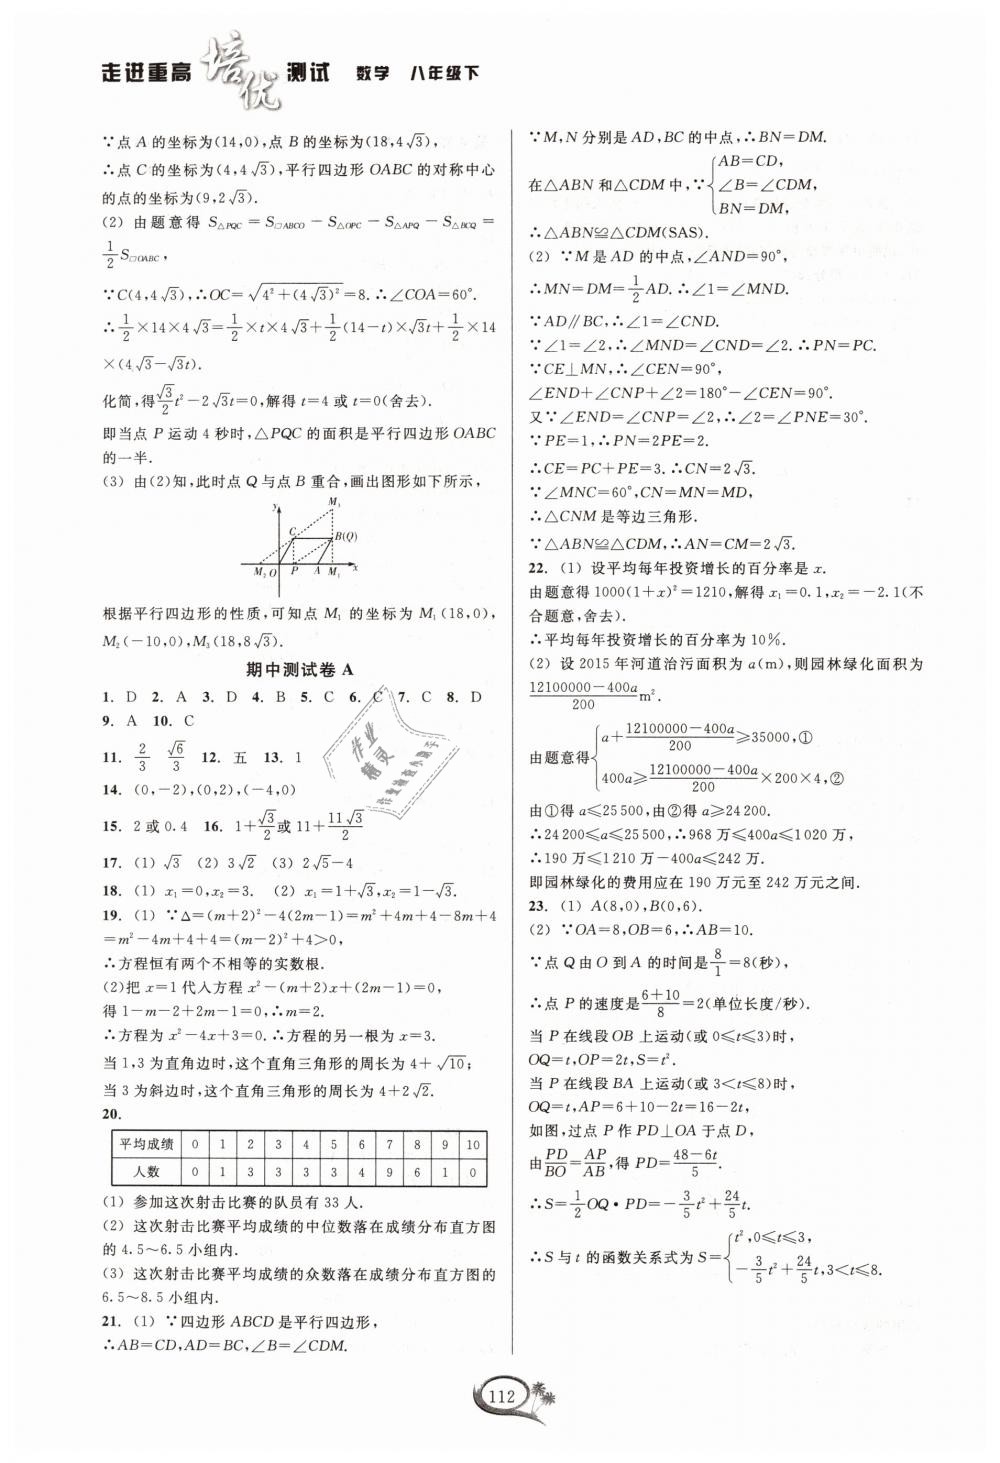 走进重高 培优 测试 数学 八年级下
∵点 A 的坐标为(14,0),点 B 的坐标为(18,4√3),
∴点 C 的坐标为(4,4√3),平行四边形 OABC 的对称中心
的点的坐标为(9,2√3).
(2) 由题意得 S△PQC = S□ABCO − S△OPC − S△APQ − S△BCQ =
1/2 S□OABC,
∵C(4,4√3),∴OC=√(4²+(4√3)²)=8.∴∠COA=60°.
∴1/2×14×4√3=1/2×t×4√3+1/2(14−t)×√3t+1/2×14
×(4√3−√3t).
化简,得√3/2 t²−2√3t=0,解得 t=4 或 t=0(舍去).
即当点 P 运动 4 秒时,△PQC 的面积是平行四边形 OABC
的一半.
(3) 由(2)知,此时点 Q 与点 B 重合,画出图形如下所示,
y M₃
C B(Q)
M₂ O P A M₁ x
根据平行四边形的性质,可知点 M₁ 的坐标为 M₁(18,0),
M₂(−10,0),M₃(18,8√3).
期中测试卷 A
1. D 2. A 3. D 4. B 5. C 6. C 7. C 8. D
9. A 10. C
11. 2/3 √6/3 12. 五 13. 1
14. (0,−2),(0,2),(−4,0)
15. 2 或 0.4 16. 1+√3/2或 11+11√3/2
17. (1) √3 (2) 3√2 (3) 2√5−4
18. (1) x₁=0,x₂=3. (2) x₁=1+√3,x₂=1−√3.
19. (1) ∵Δ=(m+2)²−4(2m−1)=m²+4m+4−8m+4
=m²−4m+4+4=(m−2)²+4>0,
∴方程恒有两个不相等的实数根.
(2)把 x=1 代入方程 x²−(m+2)x+(2m−1)=0,
得 1−m−2+2m−1=0,∴m=2.
∴方程为 x²−4x+3=0.∴方程的另一根为 x=3.
当 1,3 为直角边时,这个直角三角形的周长为 4+√10;
当 3 为斜边时,这个直角三角形的周长为 4+2√2.
20.
平均成绩 0 1 2 3 4 5 6 7 8 9 10
人数 0 1 3 3 3 3 4 9 6 1 0
(1) 参加这次射击比赛的队员有 33 人.
(2) 这次射击比赛平均成绩的中位数落在成绩分布直方图
的 4.5~6.5 小组内.
(3) 这次射击比赛平均成绩的众数落在成绩分布直方图的
6.5~8.5 小组内.
21. (1) ∵四边形 ABCD 是平行四边形,
∴AB=CD,AD=BC,∠B=∠CDM.
∵M,N 分别是 AD,BC 的中点,∴BN=DM.
在△ABN 和△CDM 中,∵{AB=CD,
∠B=∠CDM,
BN=DM,
∴△ABN≌△CDM(SAS).
(2) ∵M 是 AD 的中点,∠AND=90°,
∴MN=DM=1/2 AD.∴∠1=∠MND.
∵AD∥BC,∴∠1=∠CND.
∵∠1=∠2,∴∠MND=∠CND=∠2.∴PN=PC.
∵CE⊥MN,∴∠CEN=90°,
∠END+∠CNP+∠2=180°−∠CEN=90°.
又∵∠END=∠CNP=∠2,∴∠2=∠PNE=30°.
∵PE=1,∴PN=2PE=2.
∴CE=PC+PE=3.∴CN=2√3.
∵∠MNC=60°,CN=MN=MD,
∴△CNM 是等边三角形.
∵△ABN≌△CDM,∴AN=CM=2√3.
22. (1) 设平均每年投资增长的百分率是 x.
由题意得 1000(1+x)²=1210,解得 x₁=0.1,x₂=−2.1(不
合题意,舍去).
∴平均每年投资增长的百分率为 10%.
(2) 设 2015 年河道治污面积为 a(m),则园林绿化面积为
(12100000−400a)/200 m².
由题意得{a+(12100000−400a)/200≥35000,①
400a≥(12100000−400a)/200×200×4,②
由①得 a≤25500,由②得 a≥24200.
∴24200≤a≤25500,∴968 万≤400a≤1020 万,
∴190 万≤1210 万−400a≤242 万.
即园林绿化的费用应在 190 万元至 242 万元之间.
23. (1) A(8,0),B(0,6).
(2) ∵OA=8,OB=6,∴AB=10.
∵点 Q 由 O 到 A 的时间是8/1=8(秒),
∴点 P 的速度是(6+10)/8=2(单位长度/秒).
当 P 在线段 OB 上运动(或 0≤t≤3)时,
OQ=t,OP=2t,S=t².
当 P 在线段 BA 上运动(或 3<t≤8)时,
OQ=t,AP=6+10−2t=16−2t,
如图,过点 P 作 PD⊥OA 于点 D,
由PD/BO=AP/AB,得 PD=(48−6t)/5.
∴S=1/2 OQ·PD=−3/5 t²+24/5 t.
∴S 与 t 的函数关系式为 S={t²,0≤t≤3,
−3/5 t²+24/5 t,3<t≤8.
作业
精灵
112